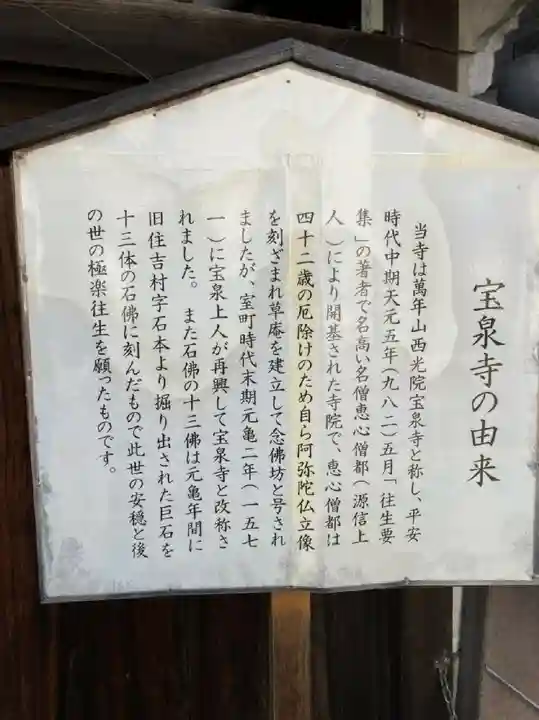 宝泉寺の由来
当寺は萬年山西光院宝泉寺と称し、平安
時代中期天元五年（九八二）五月「往生要
集」の著者で名高い名僧恵心僧都（源信上
人）により開基された寺院で、恵心僧都は
四十二歳の厄除けのため自ら阿弥陀仏立像
を刻ざまれ草庵を建立して念佛坊と号され
ましたが、室町時代末期元亀二年（一五七
一）に宝泉上人が再興して宝泉寺と改称さ
れました。また石佛の十三佛は元亀年間に
旧住吉村字石本より掘り出された巨石を
十三体の石佛に刻んだもので此世の安穏と後
の世の極楽往生を願ったものです。